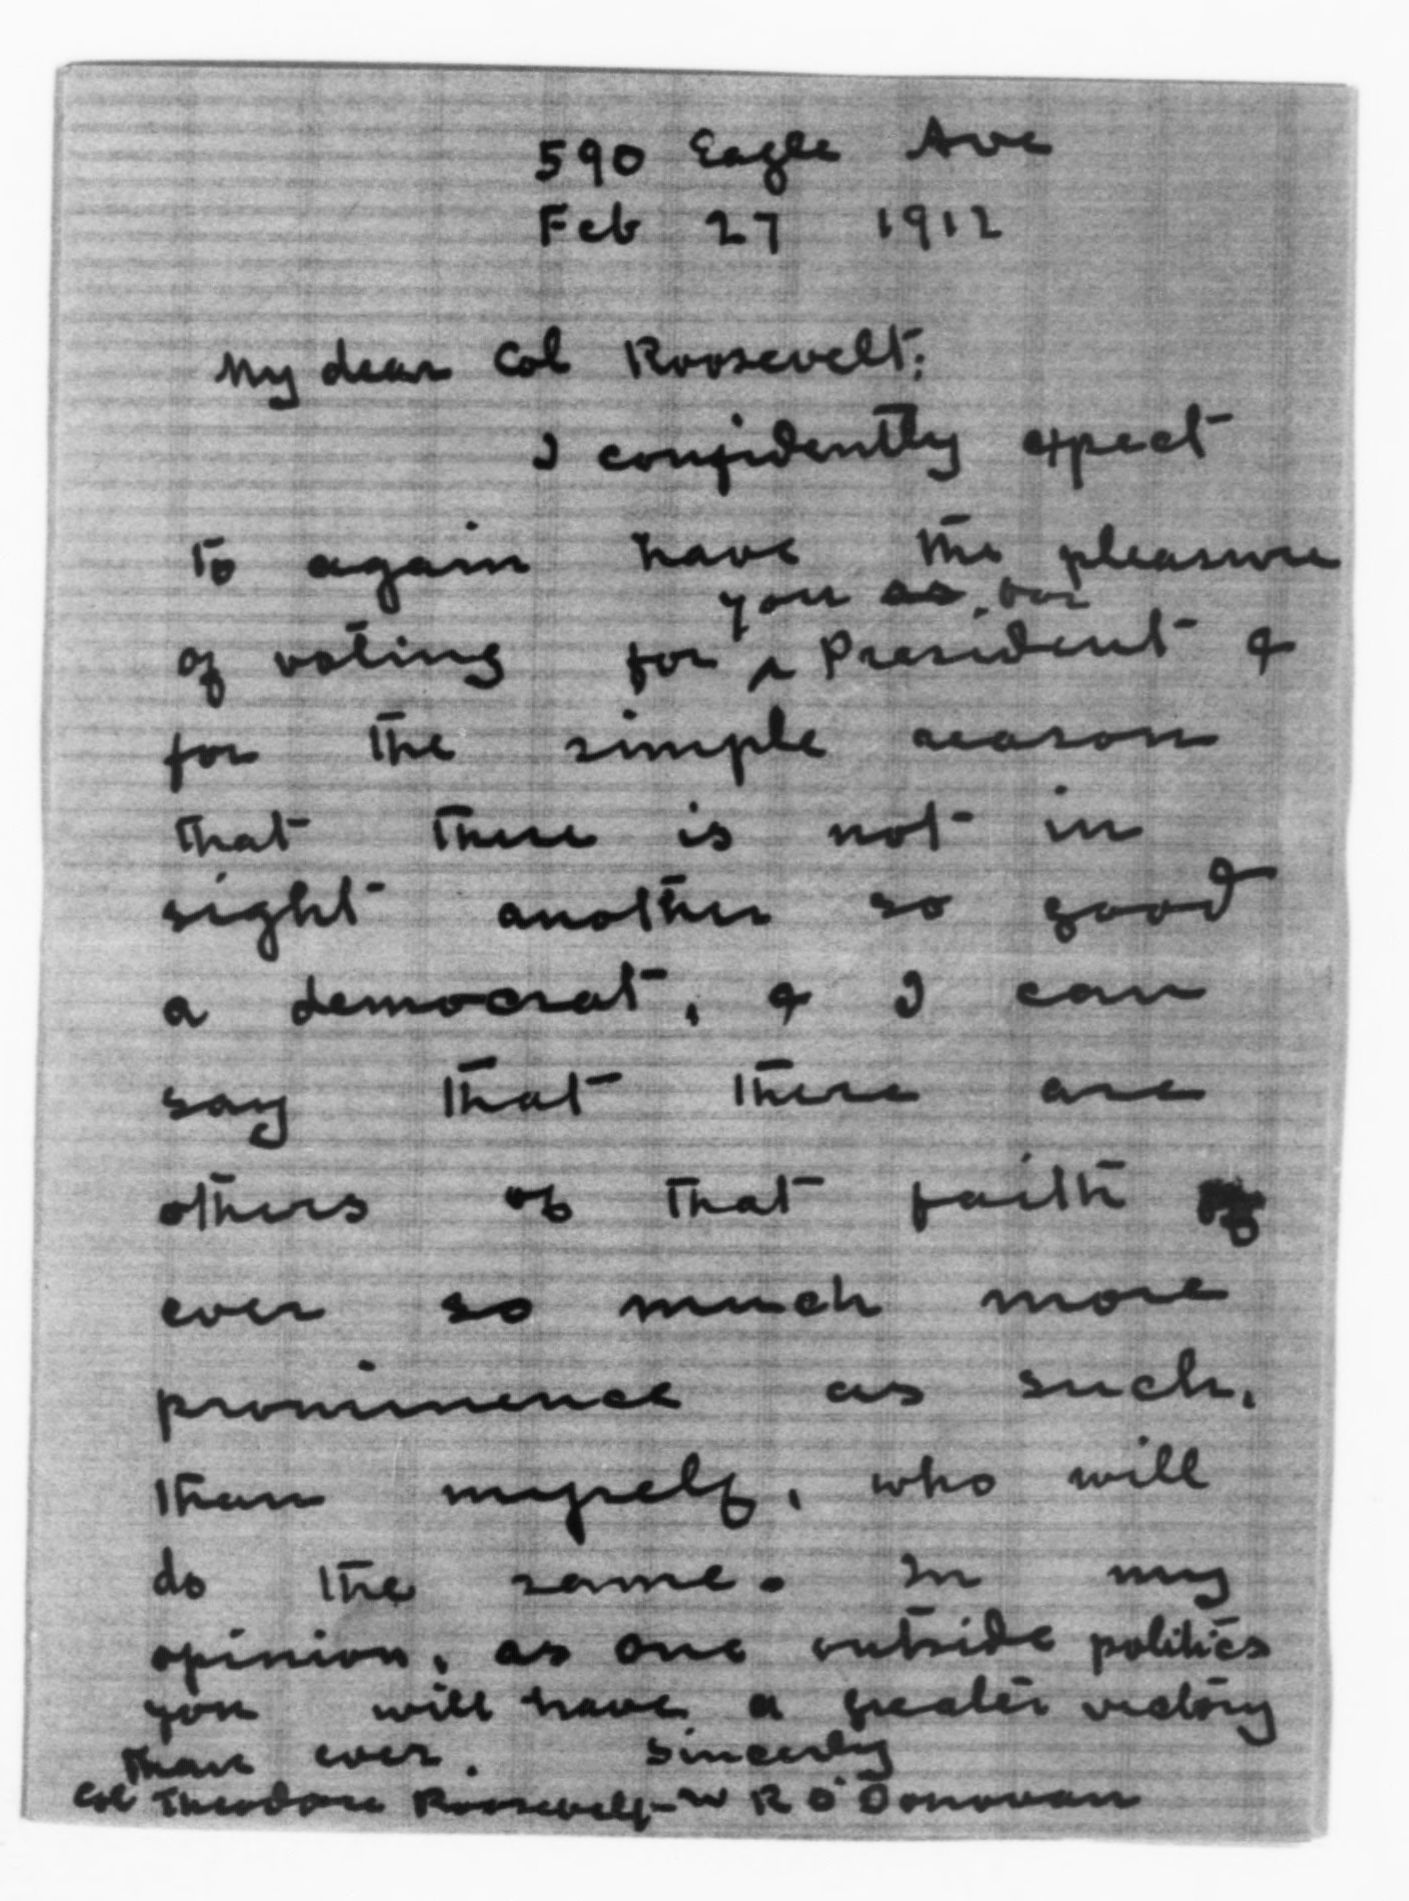 590 Eagle Ave
Feb 27 1912
My dear Col Roosevelt:
I confidently expect
to again have the pleasure
you as our
of voting for ^ President &
for the simple reason
that there is not in
sight another so good
a democrat, & I can
say that there are
others of that faith of
ever so much more
prominence as such,
than myself, who will
do the same. In my
opinion, as one outside politics
you will have a greater victory
than ever. Sincerly
Col Theodore Roosevelt - W R O'Donovan